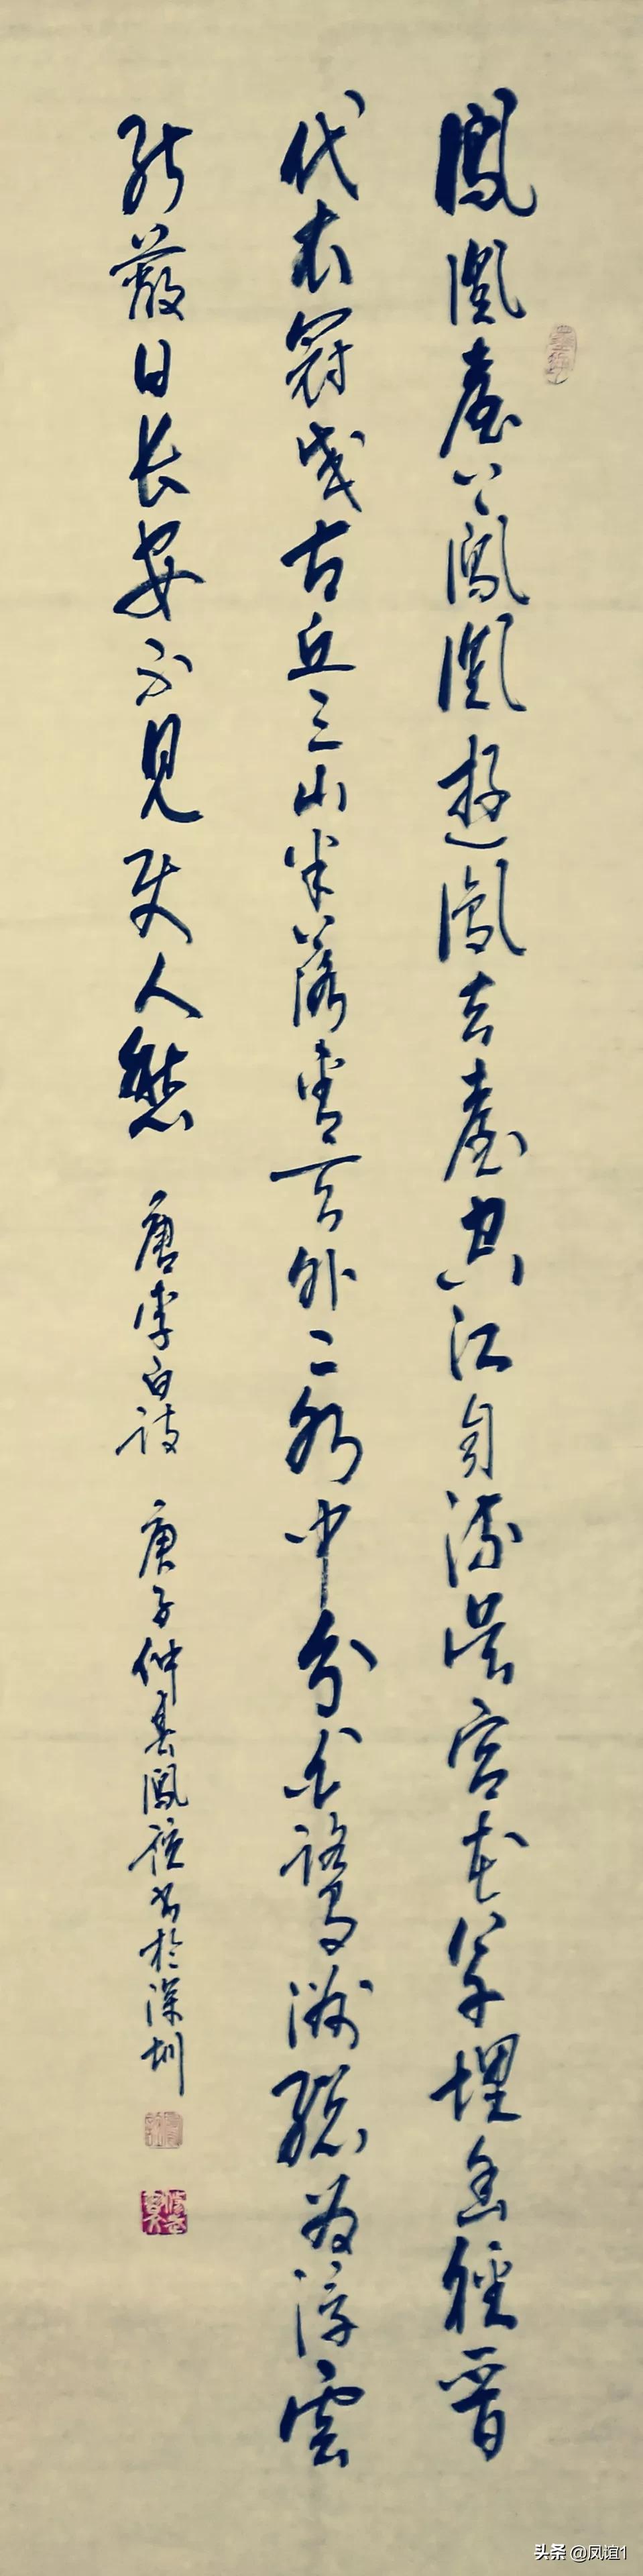 鳳凰臺上鳳凰遊鳳去臺空江自流吳宮花草埋幽徑晉
代衣冠成古丘三山半落青天外二水中分白鷺洲總為浮雲
能蔽日长安不見使人愁 唐李白詩 庚子仲春鳳誼書於深圳
头条 @凤谊1